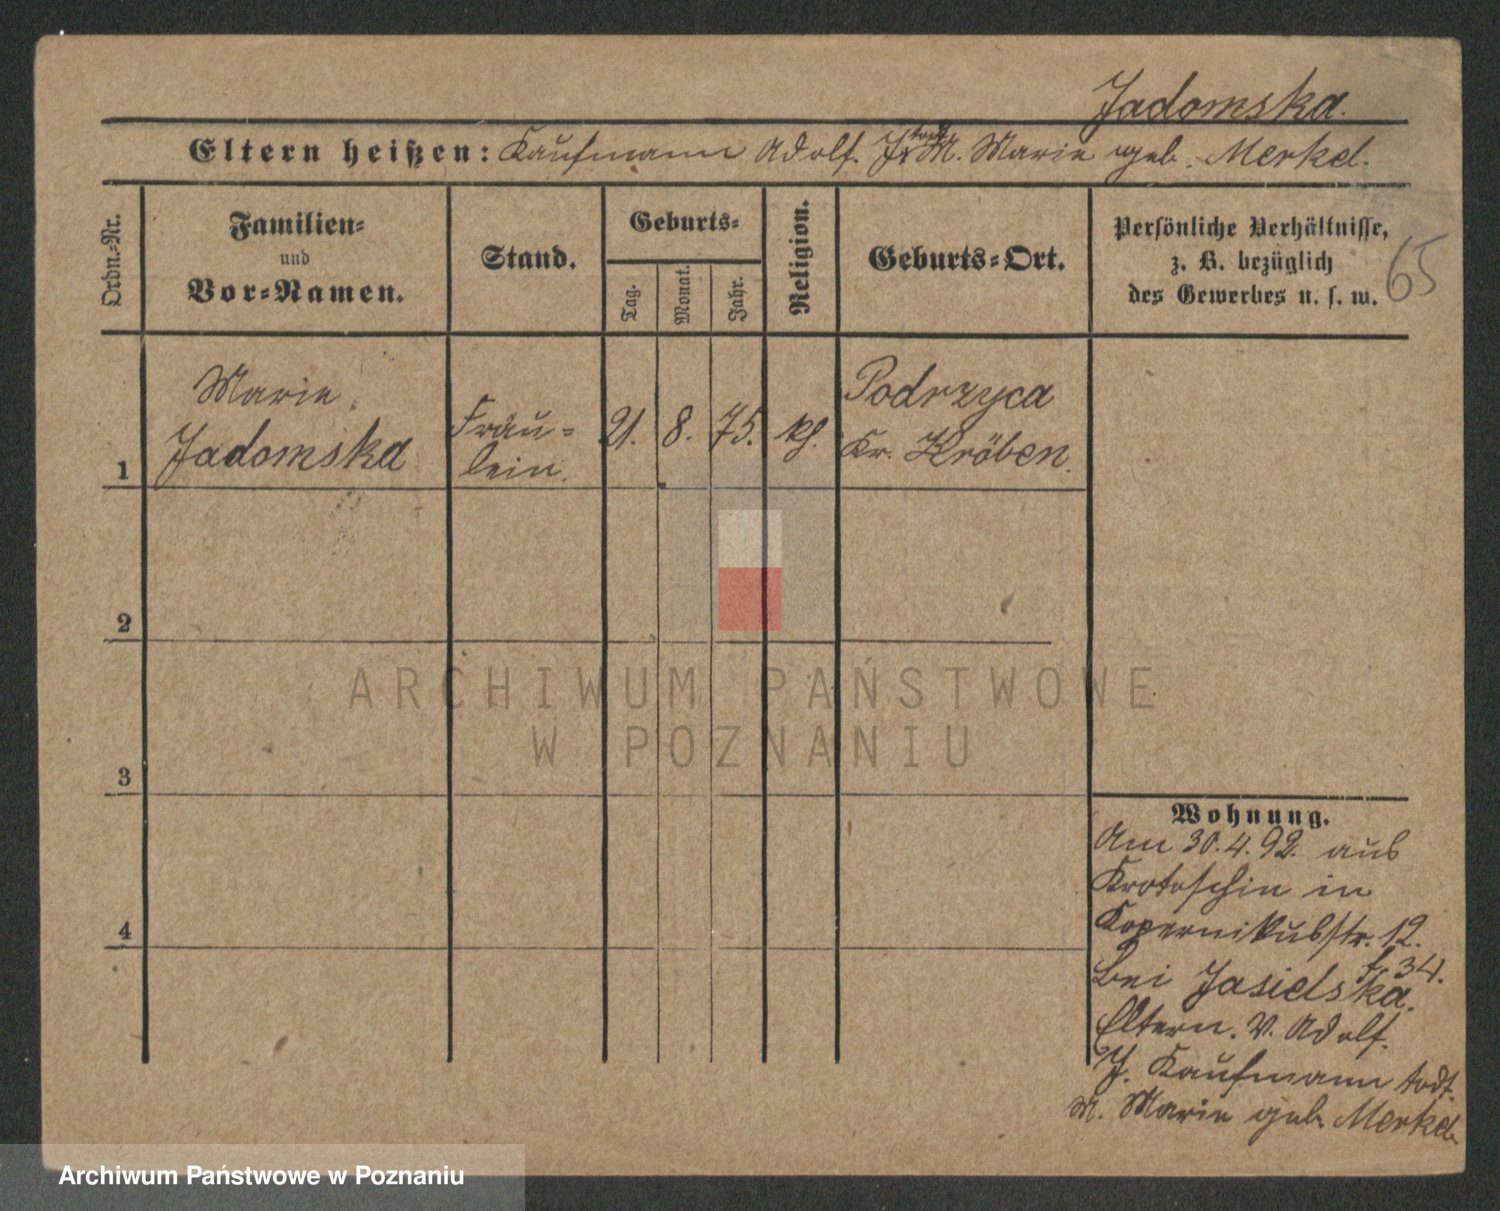 Jadomska.
Eltern heißen: Kaufmann Adolf. J. todt M. Marie geb. Merkel.
Ordn.-Nr.
Familien-
und
Vor-Namen.
Stand.
Geburts-
Tag.
Monat.
Jahr.
Religion.
Geburts-Ort.
Persönliche Verhältnisse,
z. B. bezüglich
des Gewerbes u. s. w.
65
1
Marie
Jadomska
Fräu-
lein.
21.
8.
75.
kth.
Podrzyca
Kr. Kröben.
2
3
4
Wohnung.
Am 30.4.92. aus
Krotoschin in
Kopernikusstr. 12.
34.
bei Jasielska.
Eltern. V. Adolf.
J. Kaufmann todt.
M. Marie geb. Merkel.
ARCHIWUM PAŃSTWOWE
W POZNANIU
Archiwum Państwowe w Poznaniu